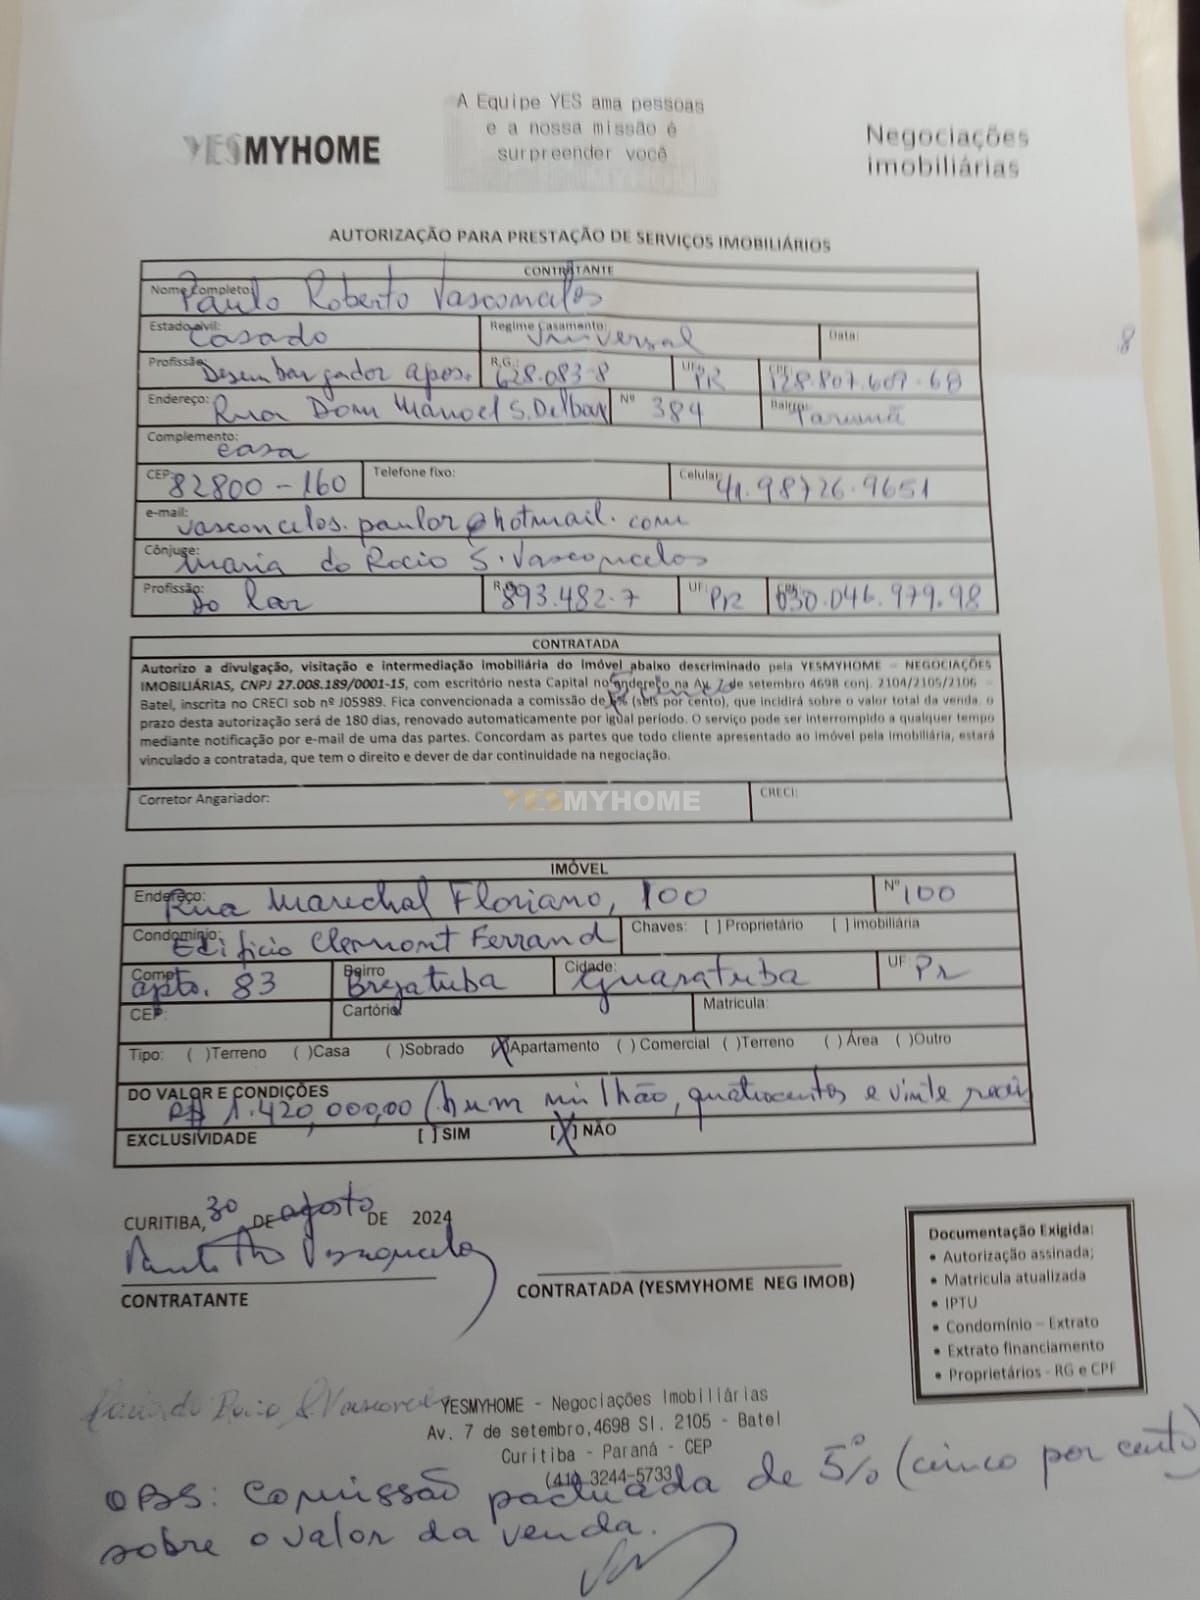 A Equipe YES ama pessoas
e a nossa missão é
surpreender você
YESMYHOME
Negociações
imobiliárias
AUTORIZAÇÃO PARA PRESTAÇÃO DE SERVIÇOS IMOBILIÁRIOS
CONTRATANTE
Nome Completo: Paulo Roberto Vasconcelos
Estado civil: Casado Regime Casamento: Universal Data:
Profissão: Desembargador apos. R.G.: 628.083-8 UF: PR CPF: 128.807.609.68
Endereço: Rua Dom Manoel S. Delbax Nº 384 Bairro: Tarumã
Complemento: casa
CEP: 82800-160 Telefone fixo: Celular: 41.98726.9651
e-mail: vasconcelos.paulor@hotmail.com
Cônjuge: Maria do Rocio S. Vasconcelos
Profissão: do lar R.G. 893.482-7 UF: PR CPF: 030.046.979.98
CONTRATADA
Autorizo a divulgação, visitação e intermediação imobiliária do imóvel abaixo descriminado pela YESMYHOME – NEGOCIAÇÕES
IMOBILIÁRIAS, CNPJ 27.008.189/0001-15, com escritório nesta Capital no endereço na Av. 7 de setembro 4698 conj. 2104/2105/2106 –
Batel, inscrita no CRECI sob nº J05989. Fica convencionada a comissão de 6% (seis por cento), que incidirá sobre o valor total da venda. o
prazo desta autorização será de 180 dias, renovado automaticamente por igual periodo. O serviço pode ser interrompido a qualquer tempo
mediante notificação por e-mail de uma das partes. Concordam as partes que todo cliente apresentado ao imóvel pela imobiliária, estará
vinculado a contratada, que tem o direito e dever de dar continuidade na negociação.
Corretor Angariador: YESMYHOME CRECI:
IMÓVEL
Endereço: Rua Marechal Floriano, 100 Nº 100
Condomínio: Edificio Clermont Ferrand Chaves: [ ] Proprietário [ ] imobiliária
Comp: apto. 83 Bairro Brejatuba Cidade: Guaratuba UF: Pr
CEP: Cartório Matricula:
Tipo: ( )Terreno ( )Casa ( )Sobrado (X)Apartamento ( ) Comercial ( )Terreno ( )Área ( )Outro
DO VALOR E CONDIÇÕES
R$ 1.420,000,00 (hum milhão, quatrocentos e vinte reais
EXCLUSIVIDADE [ ] SIM [X] NÃO
CURITIBA, 30 DE agosto DE 2024
CONTRATANTE
CONTRATADA (YESMYHOME NEG IMOB)
Documentação Exigida:
• Autorização assinada;
• Matricula atualizada
• IPTU
• Condomínio – Extrato
• Extrato financiamento
• Proprietários - RG e CPF
Maria do Rocio S. Vasconcel
YESMYHOME - Negociações Imobiliárias
Av. 7 de setembro,4698 Sl. 2105 - Batel
Curitiba - Paraná - CEP
(41) 3244-5733
OBS: Comissão pactuada de 5% (cinco por cento)
sobre o valor da venda.